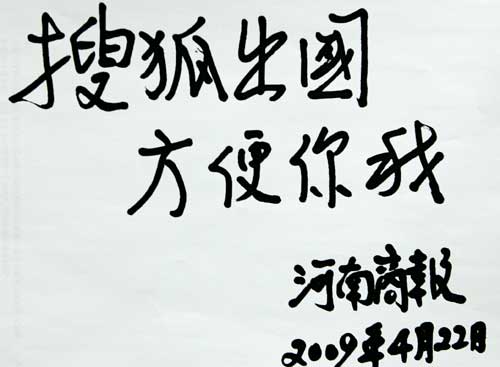 搜狐出國
方便你我
河南商報
2009年4月22日